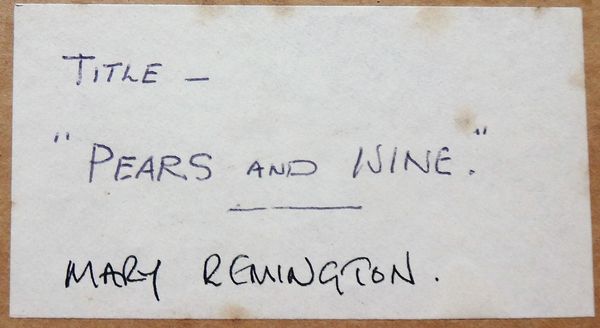 TITLE –
"PEARS AND WINE."
MARY REMINGTON.